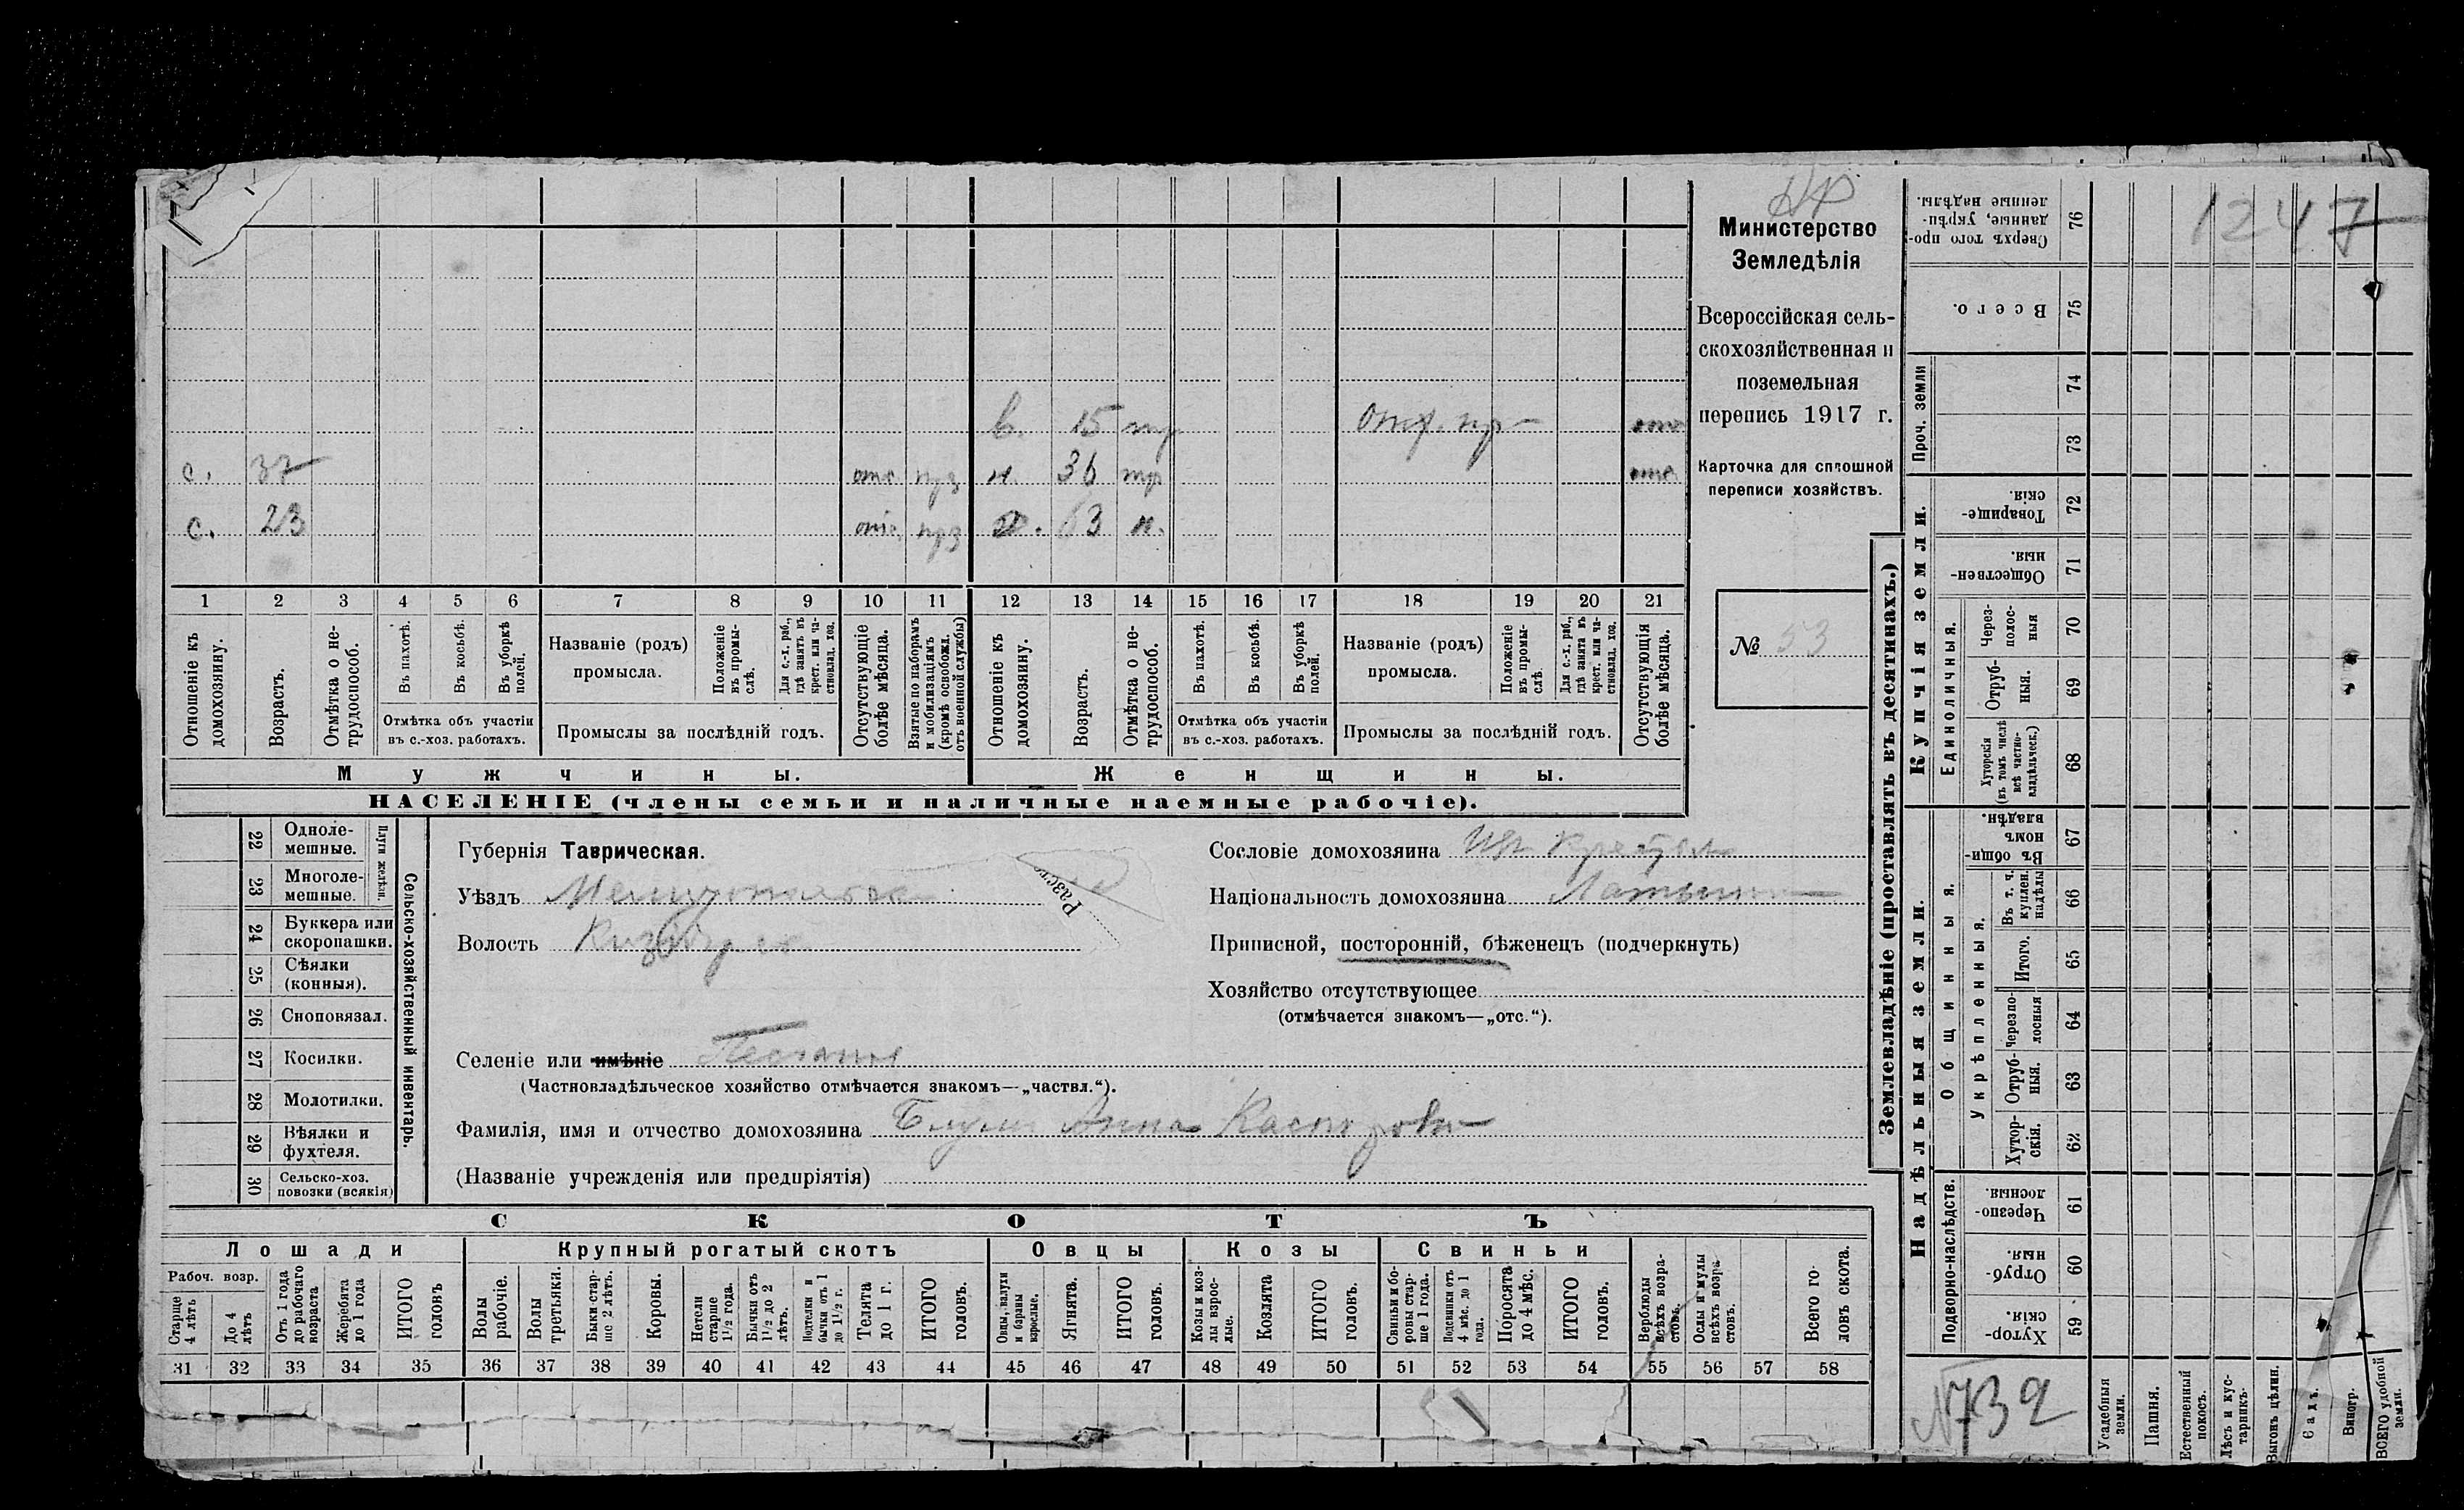 Министерство
Земледѣлія
Всероссійская сель-
скохозяйственная и
поземельная
перепись 1917 г.
Карточка для сплошной
переписи хозяйствъ.
№ 53
в. 15
отс
с. 37 отс прз н. 36 отс
с. 23 отс прз 63 н.
1 2 3 4 5 6 7 8 9 10 11 12 13 14 15 16 17 18 19 20 21
Отношеніе къ домохозяину.
Возрастъ.
Отмѣтка о не-трудоспособ.
Въ пахотѣ.
Въ косьбѣ.
Въ уборкѣ полей.
Отмѣтка объ участіи
въ с.-хоз. работахъ.
Названіе (родъ)
промысла.
Положеніе въ промы-слѣ.
Для с.-х. раб., гдѣ занятъ въ крест. или ча-стновлад. хоз.
Промыслы за послѣдній годъ.
Отсутствующіе болѣе мѣсяца.
Взятые по наборамъ и мобилизаціямъ (кромѣ освобожд. отъ военной службы)
Отношеніе къ домохозяину.
Возрастъ.
Отмѣтка о не-трудоспособ.
Въ пахотѣ.
Въ косьбѣ.
Въ уборкѣ полей.
Отмѣтка объ участіи
въ с.-хоз. работахъ.
Названіе (родъ)
промысла.
Положеніе въ промы-слѣ.
Для с.-х. раб., гдѣ занята въ крест. или ча-стновлад. хоз.
Промыслы за послѣдній годъ.
Отсутствующія болѣе мѣсяца.
Мужчины.
Женщины.
НАСЕЛЕНІЕ (члены семьи и наличные наемные рабочіе).
22 Одноле-мешные.
23 Многоле-мешные.
Плуги желѣзн.
24 Буккера или скоропашки.
25 Сѣялки (конныя).
26 Сноповязал.
27 Косилки.
28 Молотилки.
29 Вѣялки и фухтеля.
30 Сельско-хоз. повозки (всякія)
Сельско-хозяйственный инвентарь.
Губернія Таврическая.
Уѣздъ
Волость
Селеніе или имѣніе
(Частновладѣльческое хозяйство отмѣчается знакомъ—„частвл.“).
Фамилія, имя и отчество домохозяина Блум Анна Каспаровн
(Названіе учрежденія или предпріятія)
Сословіе домохозяина
Національность домохозяина Латыш
Приписной, посторонній, бѣженецъ (подчеркнуть)
Хозяйство отсутствующее
(отмѣчается знакомъ—„отс.“).
СКОТЪ
Лошади
Рабоч. возр.
31 Старше 4 лѣтъ
32 До 4 лѣтъ
33 Отъ 1 года до рабочаго возраста
34 Жеребята до 1 года
35 ИТОГО головъ
Крупный рогатый скотъ
36 Волы рабочіе.
37 Волы третьяки.
38 Быки стар-ше 2 лѣтъ.
39 Коровы.
40 Нетели старше 1½ года.
41 Бычки отъ 1½ до 2 лѣтъ.
42 Подтелки и бычки отъ 1 до 1½ г.
43 Телята до 1 г.
44 ИТОГО головъ.
Овцы
45 Овцы, валухи и бараны взрослые.
46 Ягнята.
47 ИТОГО головъ.
Козы
48 Козы и коз-лы взрос-лые.
49 Козлята
50 ИТОГО головъ.
Свиньи
51 Свиньи и бо-ровы стар-ше 1 года.
52 Подсвинки отъ 4 мѣс. до 1 года.
53 Поросята до 4 мѣс.
54 ИТОГО головъ.
55 Верблюды всѣхъ возра-стовъ.
56 Ослы и мулы всѣхъ возра-стовъ.
57
58 Всего го-ловъ скота.
Землевладѣніе (проставлять въ десятинахъ.)
1247
76 Сверхъ того про-данные, укрѣп-ленные надѣлы.
75 Всего.
Проч. земли
74
73
Купчія земли.
72 Товарище-скія.
71 Обществен-ныя.
Единоличныя.
70 Через-полос-ныя
69 Отруб-ныя.
68 Хуторскія (въ томъ числѣ всѣ частно-владѣльческ.)
Надѣльныя земли.
Общинныя.
67 Въ общи-номъ владѣн.
Укрѣпленныя.
66 Въ т. ч. куплен. надѣлы
65 Итого.
64 Черезпо-лосныя
63 Отруб-ныя.
62 Хутор-скія.
Подворно-наслѣдств.
61 Черезпо-лосныя.
60 Отруб-ныя.
59 Хутор-скія.
Усадебныя земли.
Пашня.
Естественный покосъ.
Лѣсъ и кус-тарникъ.
Выгонъ цѣлин.
Садъ.
Виногр.
ВСЕГО удобной земли.